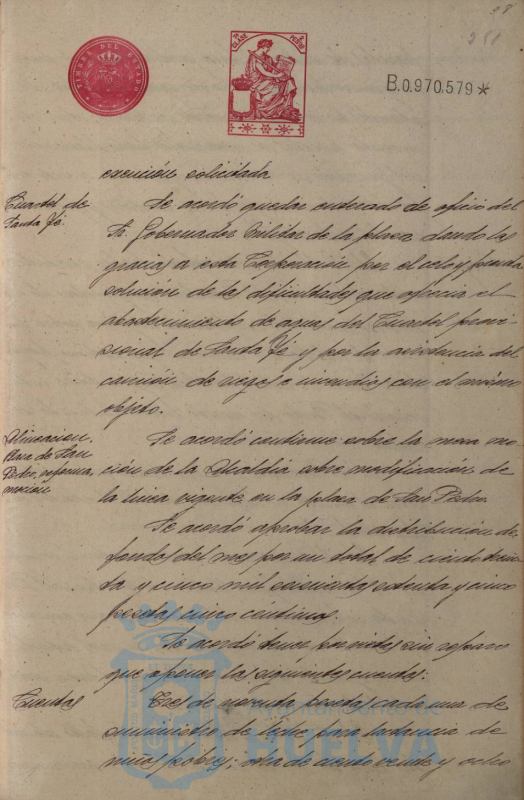 TIMBRE DEL ESTADO
8ª CLASE
B.0.970.579*
exención solicitada
Cuartel de
Santa Fé
Se acordó quedar enterado de oficio del
Sr. Gobernador Militar de la plaza dando las
gracias a esta Corporación por el celo y pronta
solución de las dificultades que ofrecia el
abastecimiento de aguas del Cuartel provi-
sional de Santa Fé y por la asistencia del
camión de riegos e incendios con el mismo
objeto.
Alineacion,
Plaza de San
Pedro, reforma,
moción
Se acordó continue sobre la mesa mo-
ción de la Alcaldia sobre modificación de
la linea vigente en la plaza de San Pedro
Se acordó aprobar la distribución de
fondos del mes por un total de ciento trein-
ta y cinco mil seiscientas setenta y cinco
pesetas cinco céntimos.
Se acordó tener por vistas sin reparo
que oponer las siguientes cuentas:
Cuentas
Tres de noventa pesetas cada una de
suministro de leche para lactancia de
niños pobres; otra de ciento veinte y ocho
Ayuntamiento de
HUELVA